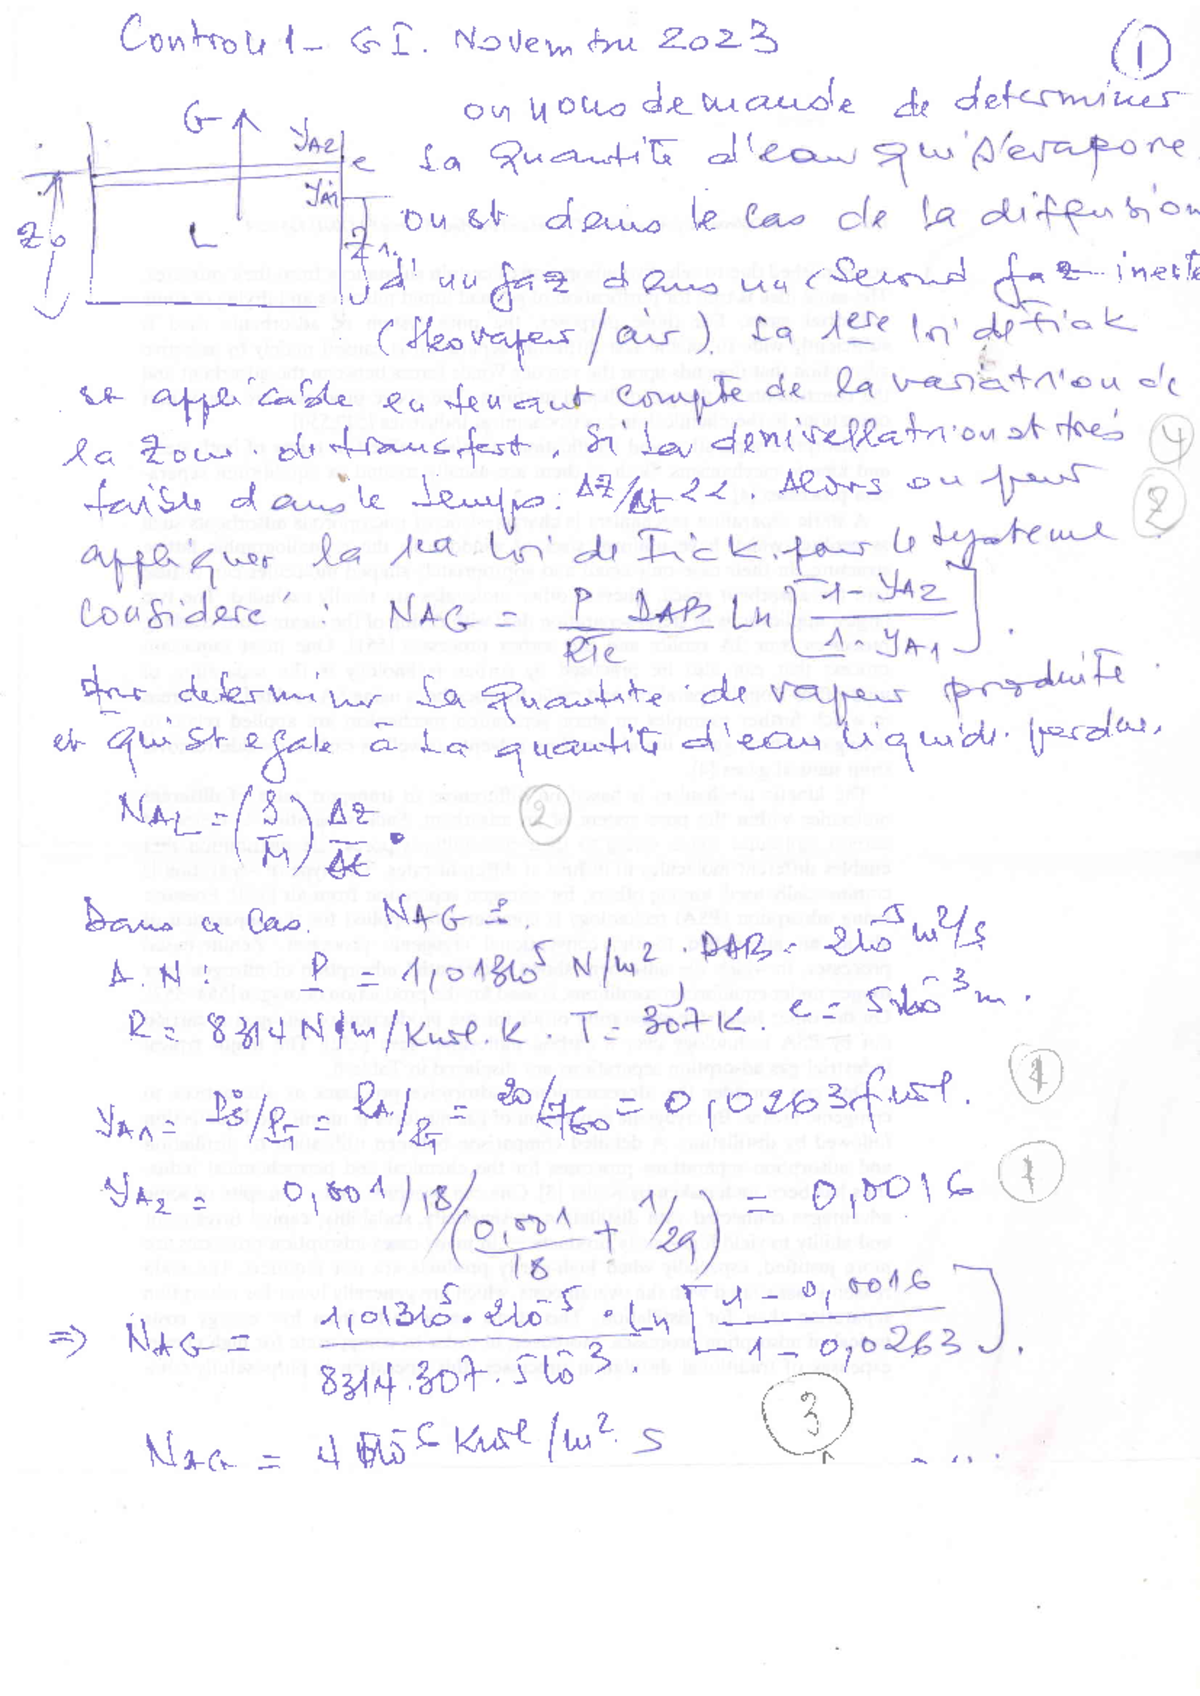 Controle 1 - G I. Novembre 2023
1
on nous demande de determiner
G YA2
e la Quantité d'eau qui s'evapore.
YA1
on est dans le cas de la diffusion
Z0 L Z1
d'un gaz dans un second gaz inerte
(H2O vapeur/air). La 1ere loi de Fick
est applicable en tenant compte de la variation de
la zone de transfert. Si la denivellation est très 4
faible dans le temps. ΔZ/Δt << . Alors on peut 2
appliquer la 1ea loi de Fick. pour le systeme
considéré : NAG = P DAB / RTe Ln [ 1 - YA2 / 1 - YA1 ] .
Pour determiner la quantite de vapeur produite.
et qui st egale à la quantité d'eau liquide perdue.
NAL = (ρ/M) ΔZ/Δt . 2
Dans ce cas. NAG = .
A.N : P = 1,013 10^5 N/m². DAB = 2 10^-5 m²/s
R = 8314 N.m/Kmol.K T = 307 K. e = 5 10^-3 m.
YA1 = P°/PT = PA/PT = 20/760 = 0,0263 f.mol. 1
YA2 = 0,001/18/(0,001/18 + 1/29) = 0,0016 1
=> NAG = 1,013 10^5 . 2 10^-5 / 8314.307.5 10^-3 . Ln [ 1 - 0,0016 / 1 - 0,0263 ] .
NAG = 4 10^-6 Kmol/m². s 3